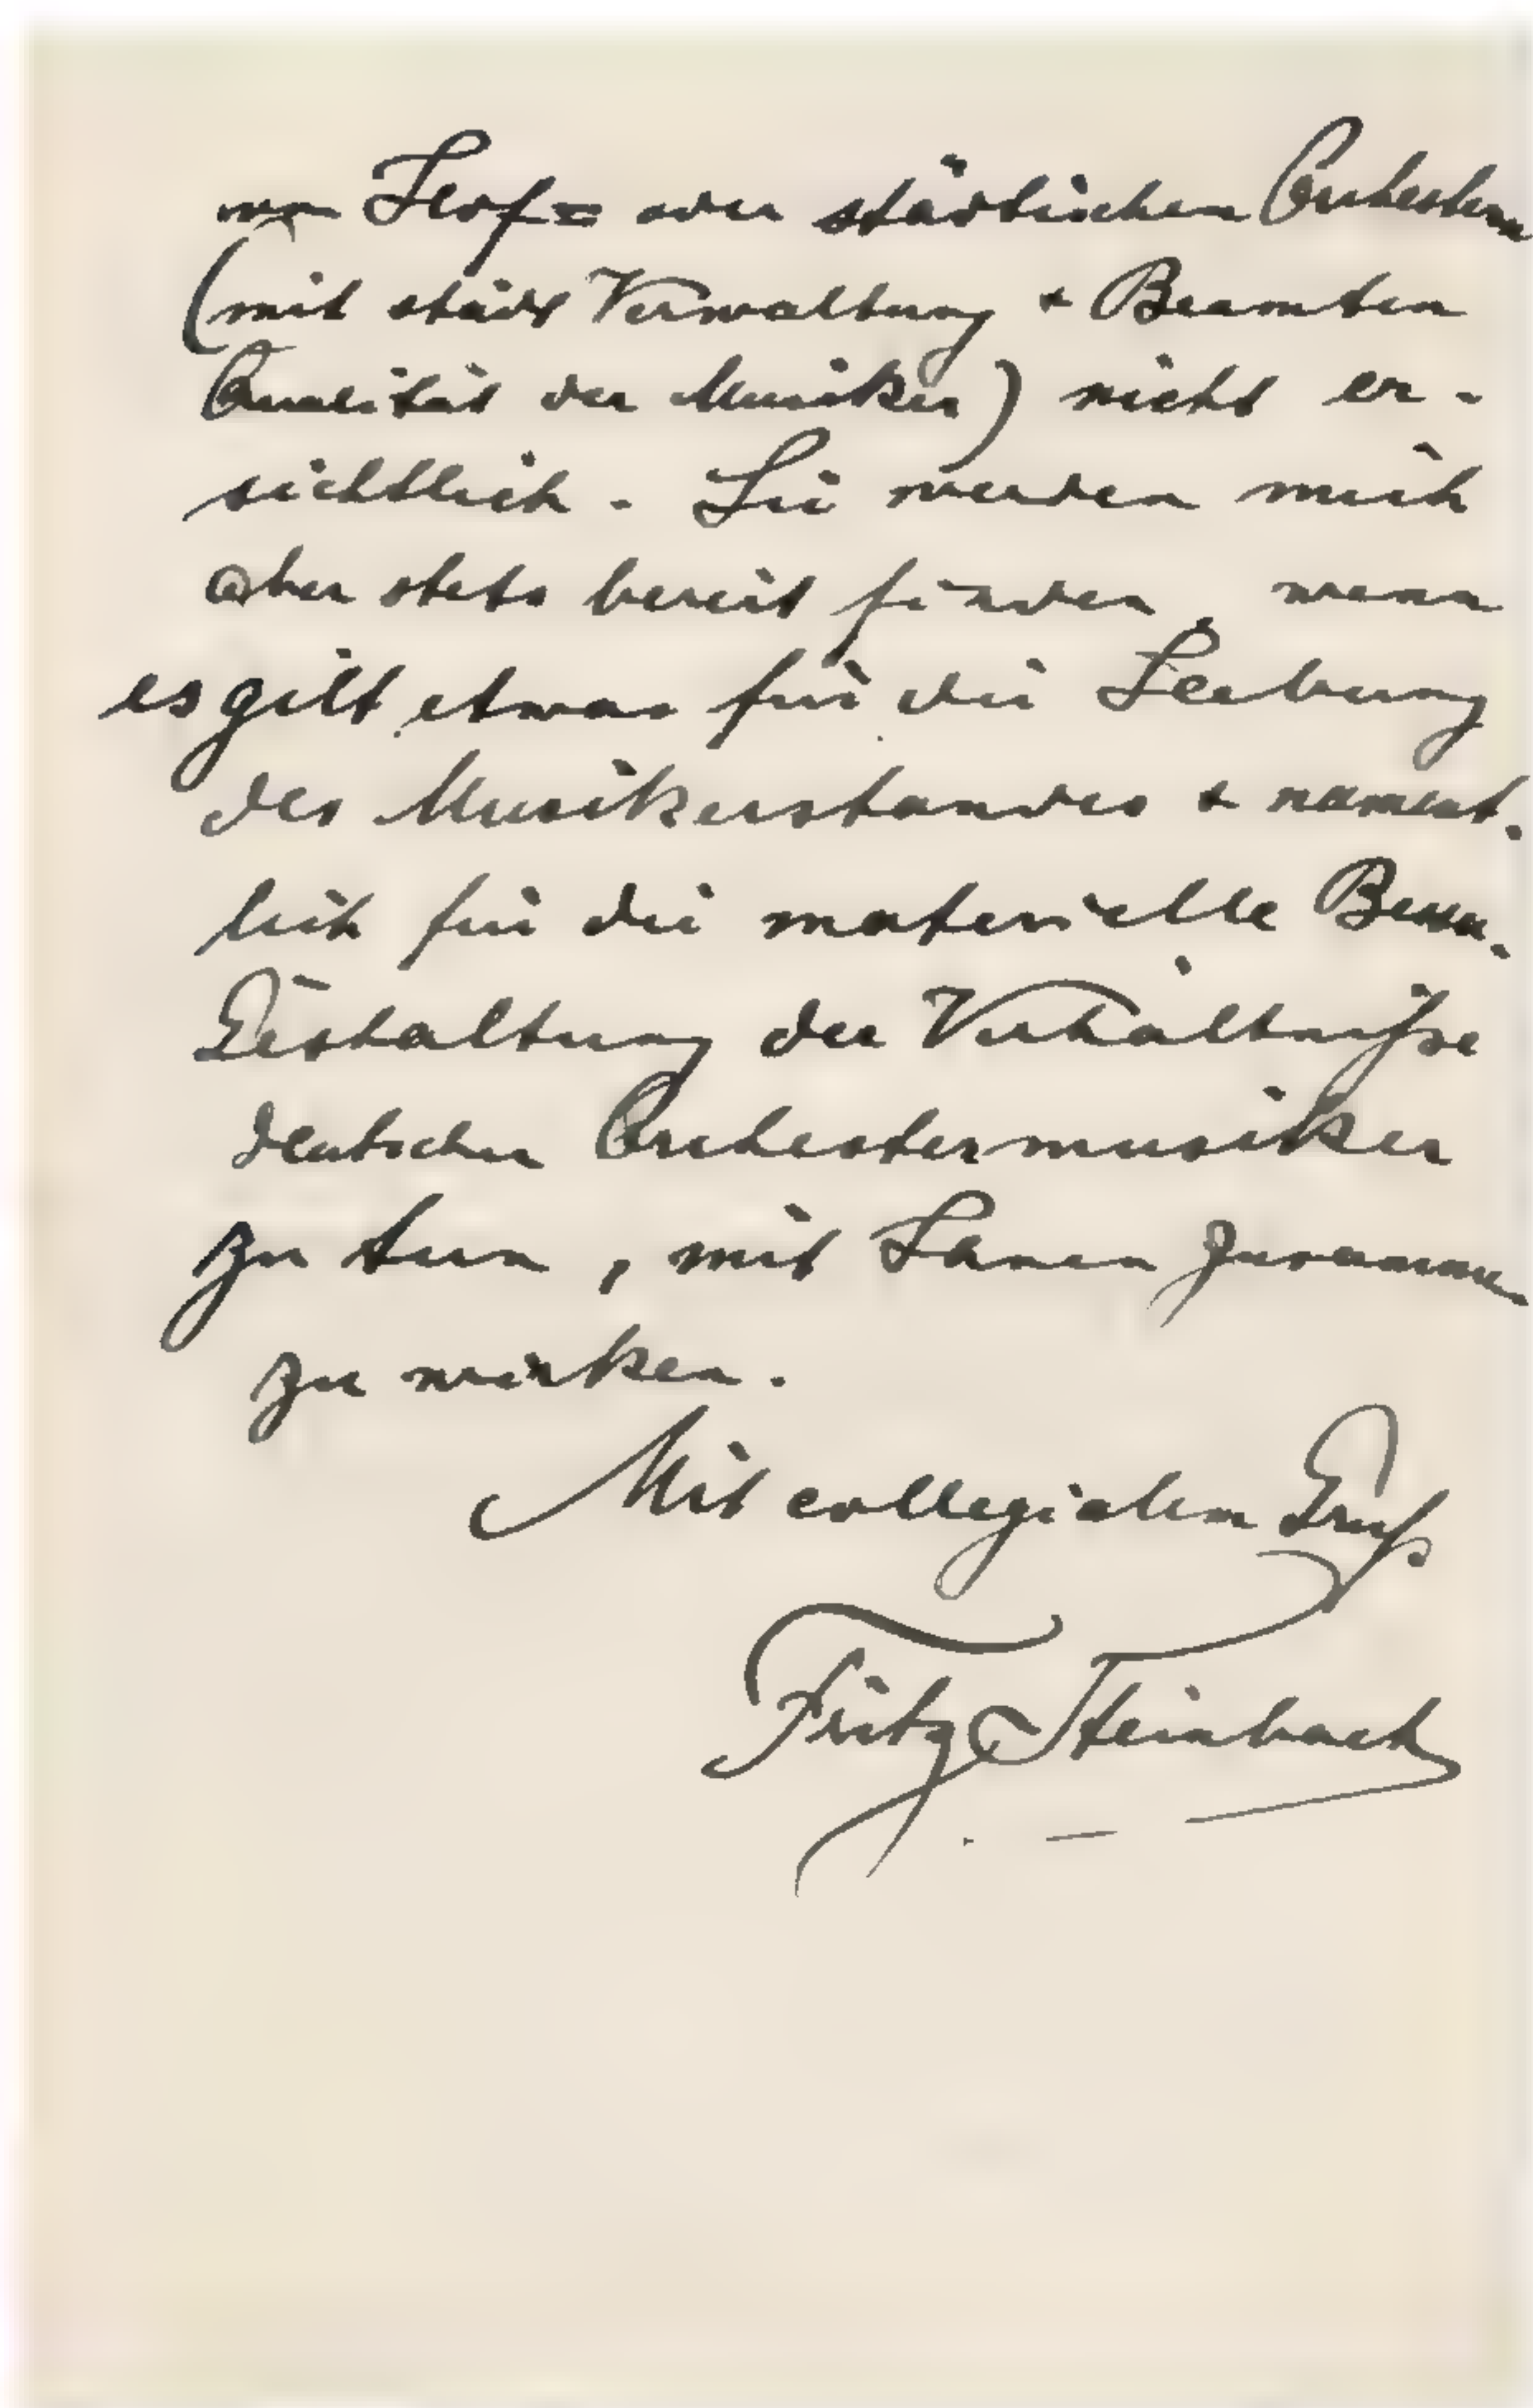 von Hof= oder städtischen Orchestern
(mit städt Verwaltung + Beamten
Qualität der Musiker) nicht er-
sichtlich. Sie werden mich
aber stets bereit finden, wenn
es gilt etwas für die Hebung
des Musikerstandes + nament-
lich für die materielle Besser-
Gestaltung der Verhältniße
deutscher Orchestermusiker
zu tun, mit Ihnen zusammen
zu wirken.
Mit collegialem Gruß
Fritz Steinbach